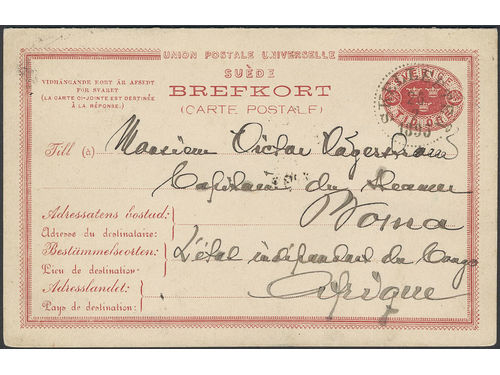 UNION POSTALE UNIVERSELLE
SUÈDE
BREFKORT
(CARTE POSTALE)
VIDHÄNGANDE KORT ÄR AFSEDT
FÖR SVARET
(LA CARTE CI-JOINTE EST DESTINÉE
À LA RÉPONSE.)
SVERIGE
TIO ÖRE
Till (à) Monsieur Victor Lägerstrand
Capitaine du Steamer
Adressatens bostad: Boma
Adresse du destinataire:
Bestämmelseorten: L'état indépendant du Congo
Lieu de destination:
Adresslandet: Afrique
Pays de destination: